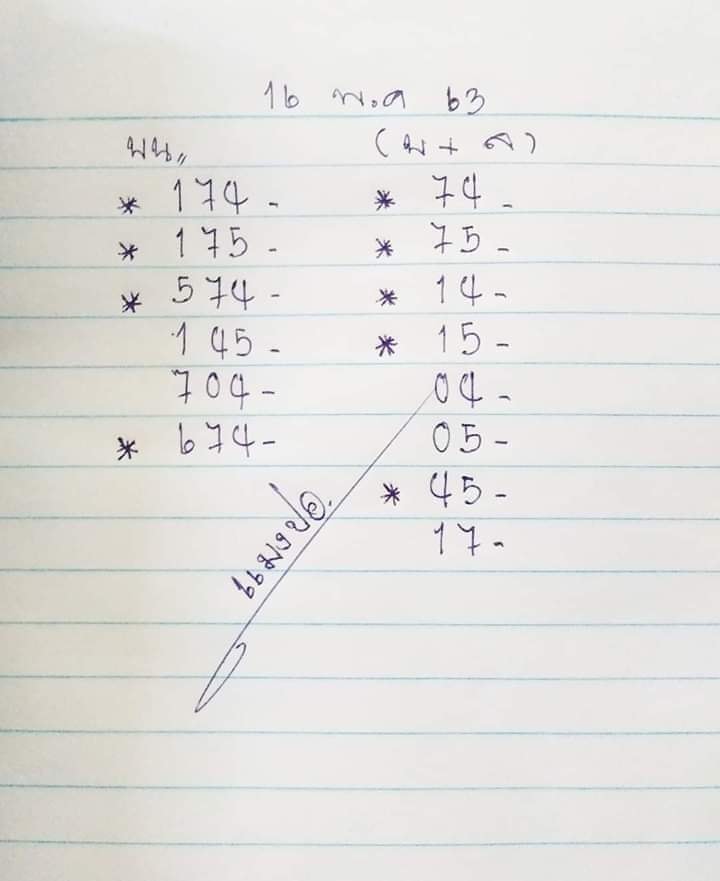 16 พ.ค 63
บน,, (บ + ล)
* 174 - * 74 -
* 175 - * 75 -
* 574 - * 14 -
145 - * 15 -
704 - 04 -
* 674 - 05 -
* 45 -
17 -
แมงปอ.